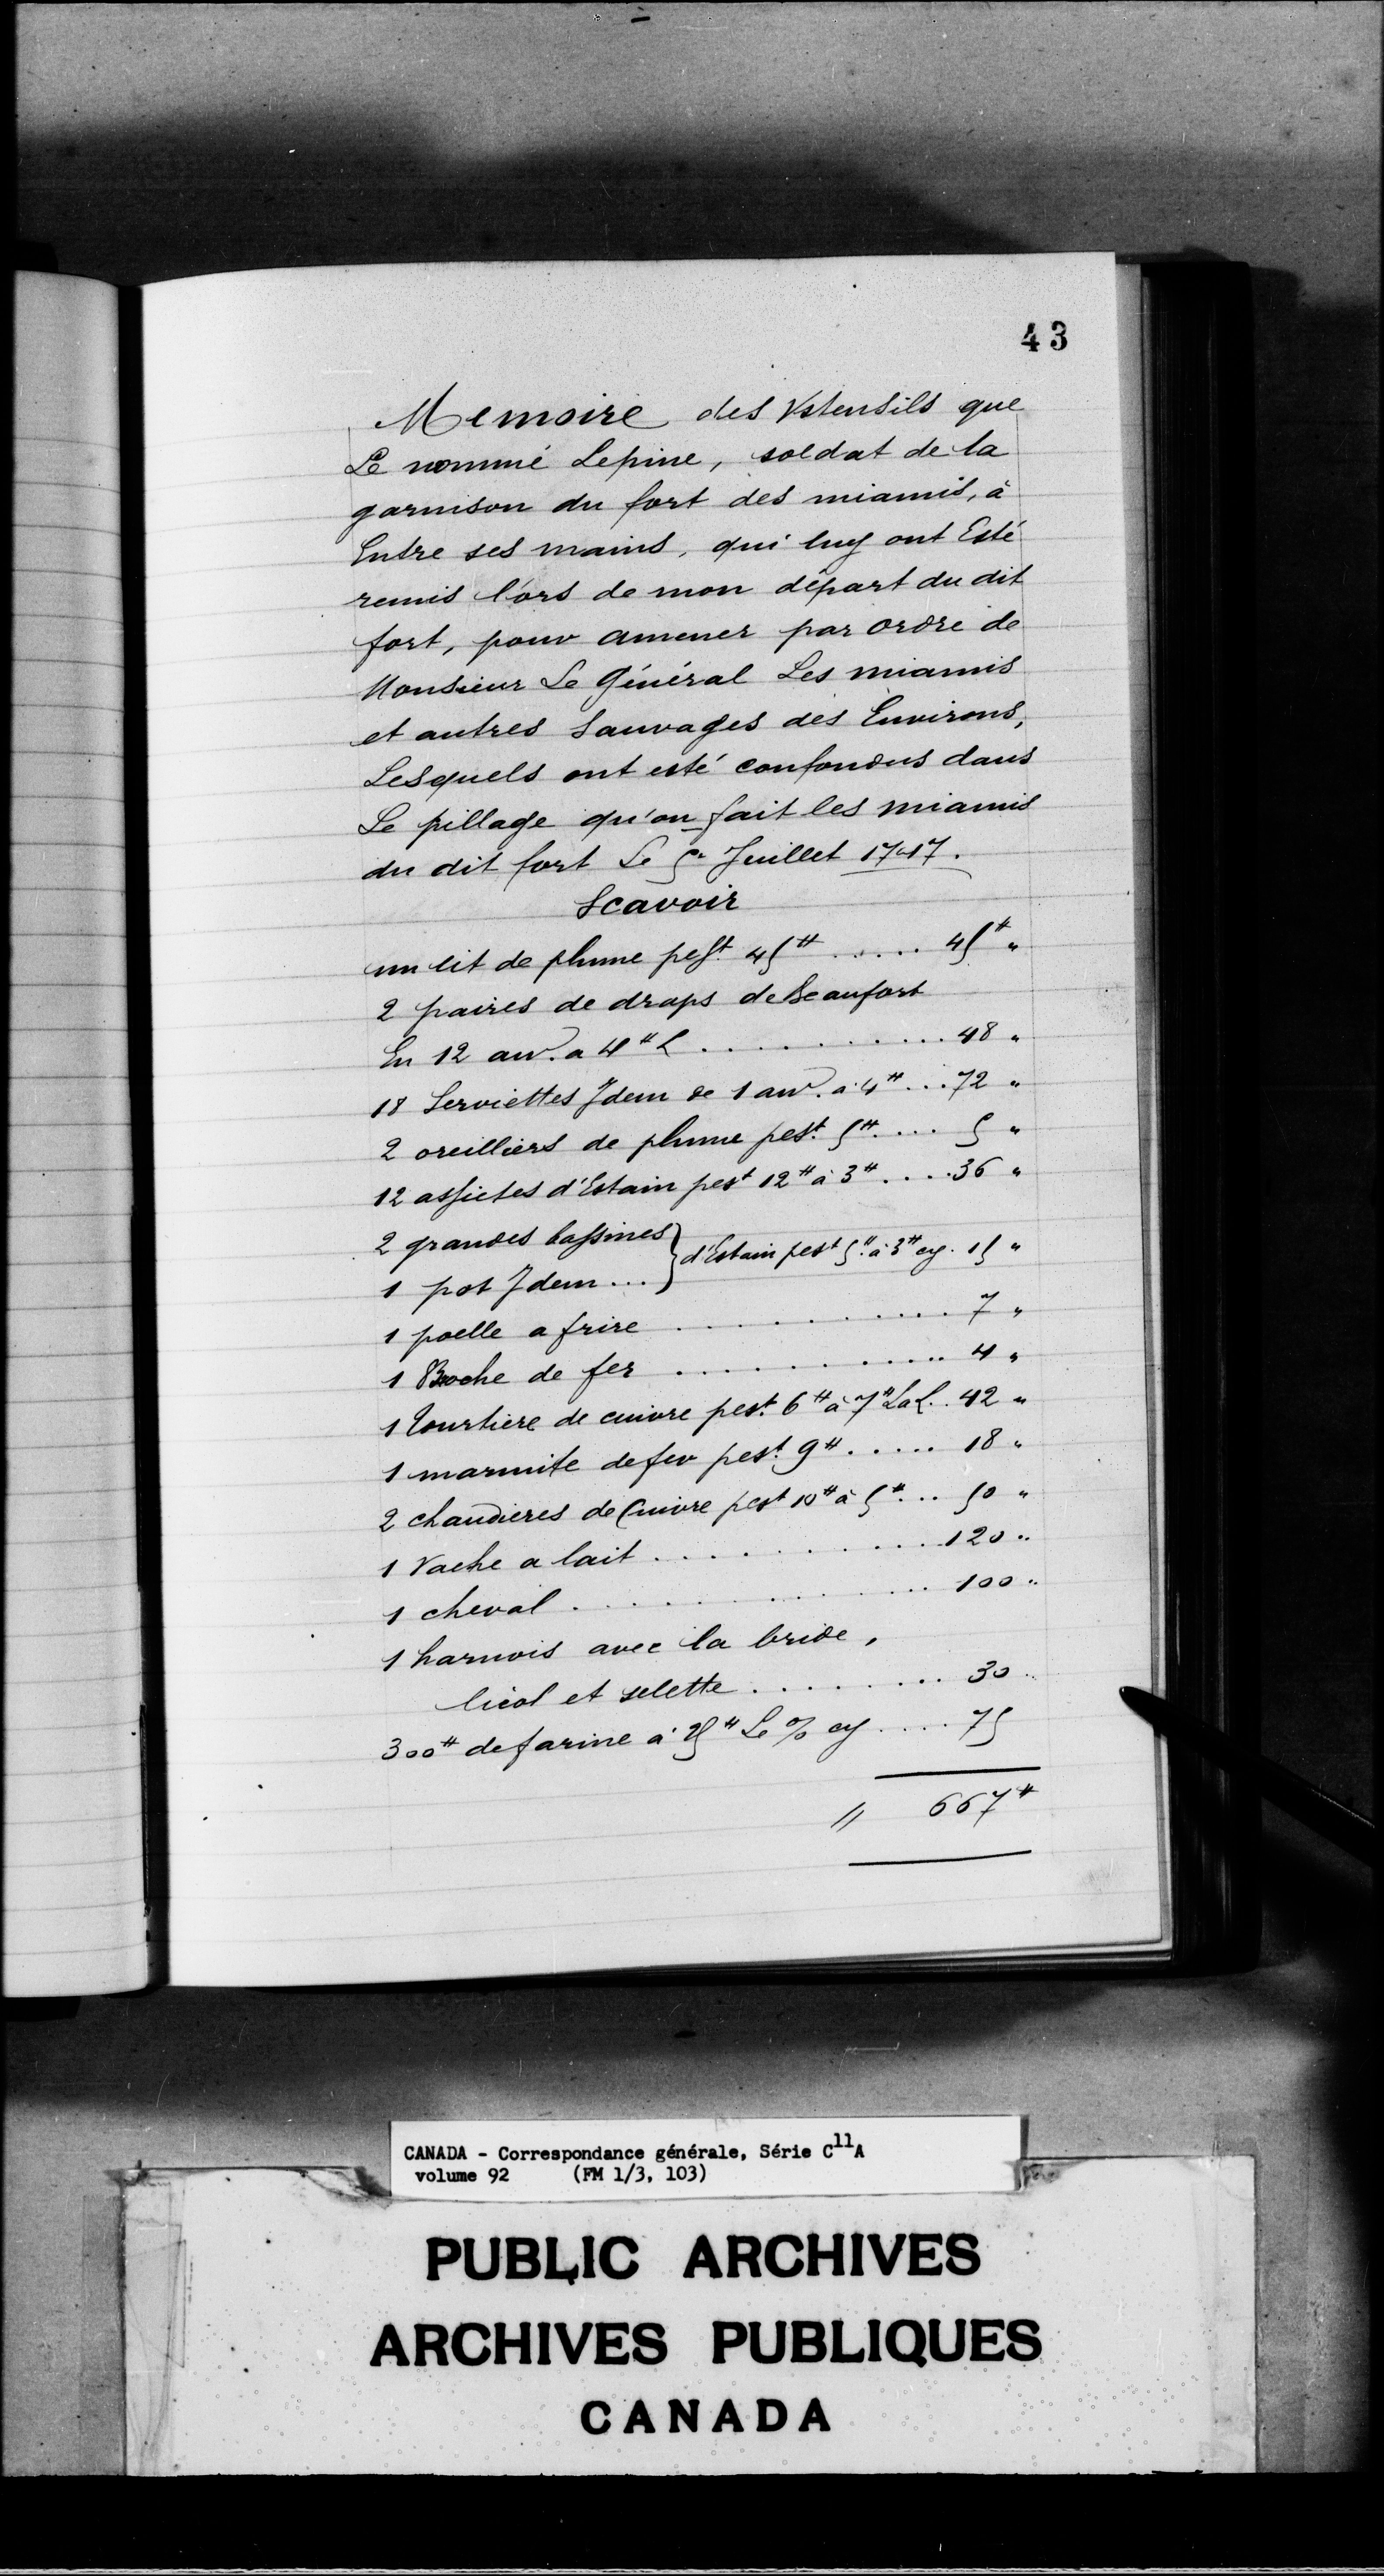 43
Memoire des Vstensils que
Le nommé Lepine, soldat de la
garnison du fort des miamis, à
Entre ses mains, qui luy ont Esté
remis lors de mon départ du dit
fort, pour amener par ordre de
Monsieur Le Général Les miamis
et autres Sauvages des Environs,
Lesquels ont esté confondus dans
Le pillage qu'on fait les miamis
du dit fort Le 5e Juillet 1747.
Scavoir
un lit de plume pest 45# ..... 45# "
2 paires de draps de Beaufort
En 12 au. a 4# L ........... 48 "
18 Serviettes Jdem de 1 au. a 4# ... 72 "
2 oreilliers de plume pest. 5# .... 5 "
12 assietes d'Estain pest 12# à 3# .... 36 "
2 grandes bassines } d'Estain pest 5# à 3# cy. 15 "
1 pot Jdem ...
1 poelle a frire ........... 7 "
1 Broche de fer ........... 4 "
1 Tourtiere de cuivre pest. 6# à 7# La L. . 42 "
1 marmite de fer pest. 9# ..... 18 "
2 chaudieres de Cuivre pest 10# à 5# ... 50 "
1 Vache a lait ........... 120 "
1 cheval ............. 100 "
1 harnois avec la bride,
licol et selette ......... 30 "
300# de farine à 25# Le % cy .... 75
// 667#
CANADA - Correspondance générale, Série C11A
volume 92 (FM 1/3, 103)
PUBLIC ARCHIVES
ARCHIVES PUBLIQUES
CANADA